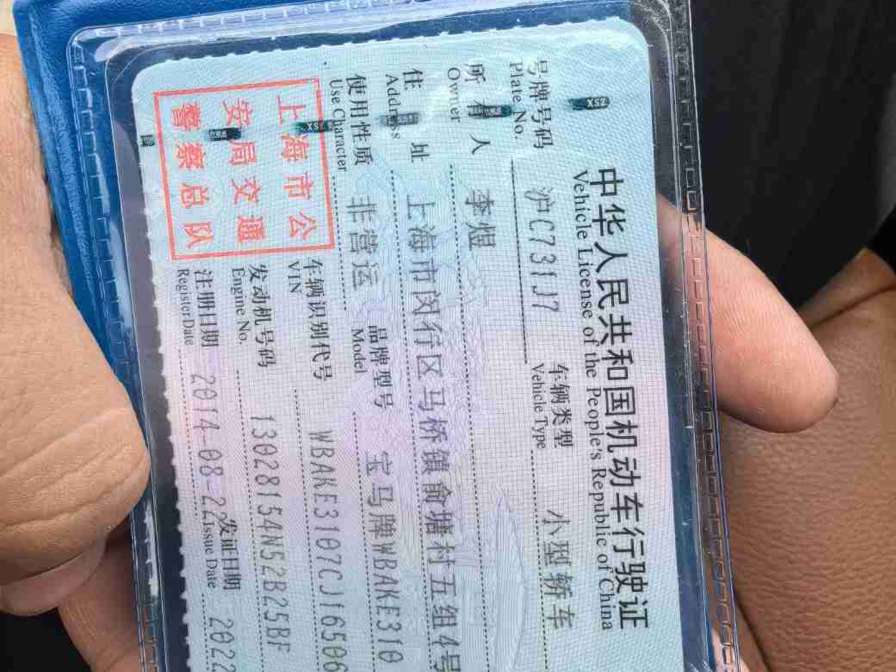 中华人民共和国机动车行驶证
Vehicle License of the People's Republic of China
号牌号码 沪C731J7 车辆类型 小型轿车
Plate No. Vehicle Type
所有人 李煜
Owner
住址 上海市闵行区马桥镇俞塘村五组4号
Address
使用性质 非营运 品牌型号 宝马牌WBAKE310
Use Character Model
上海市公
安局交通
警察总队
车辆识别代号 WBAKE3107CJ16506
VIN
发动机号码 13028154N52B25BF
Engine No.
注册日期 2014-08-22 发证日期 2022
Register Date Issue Date